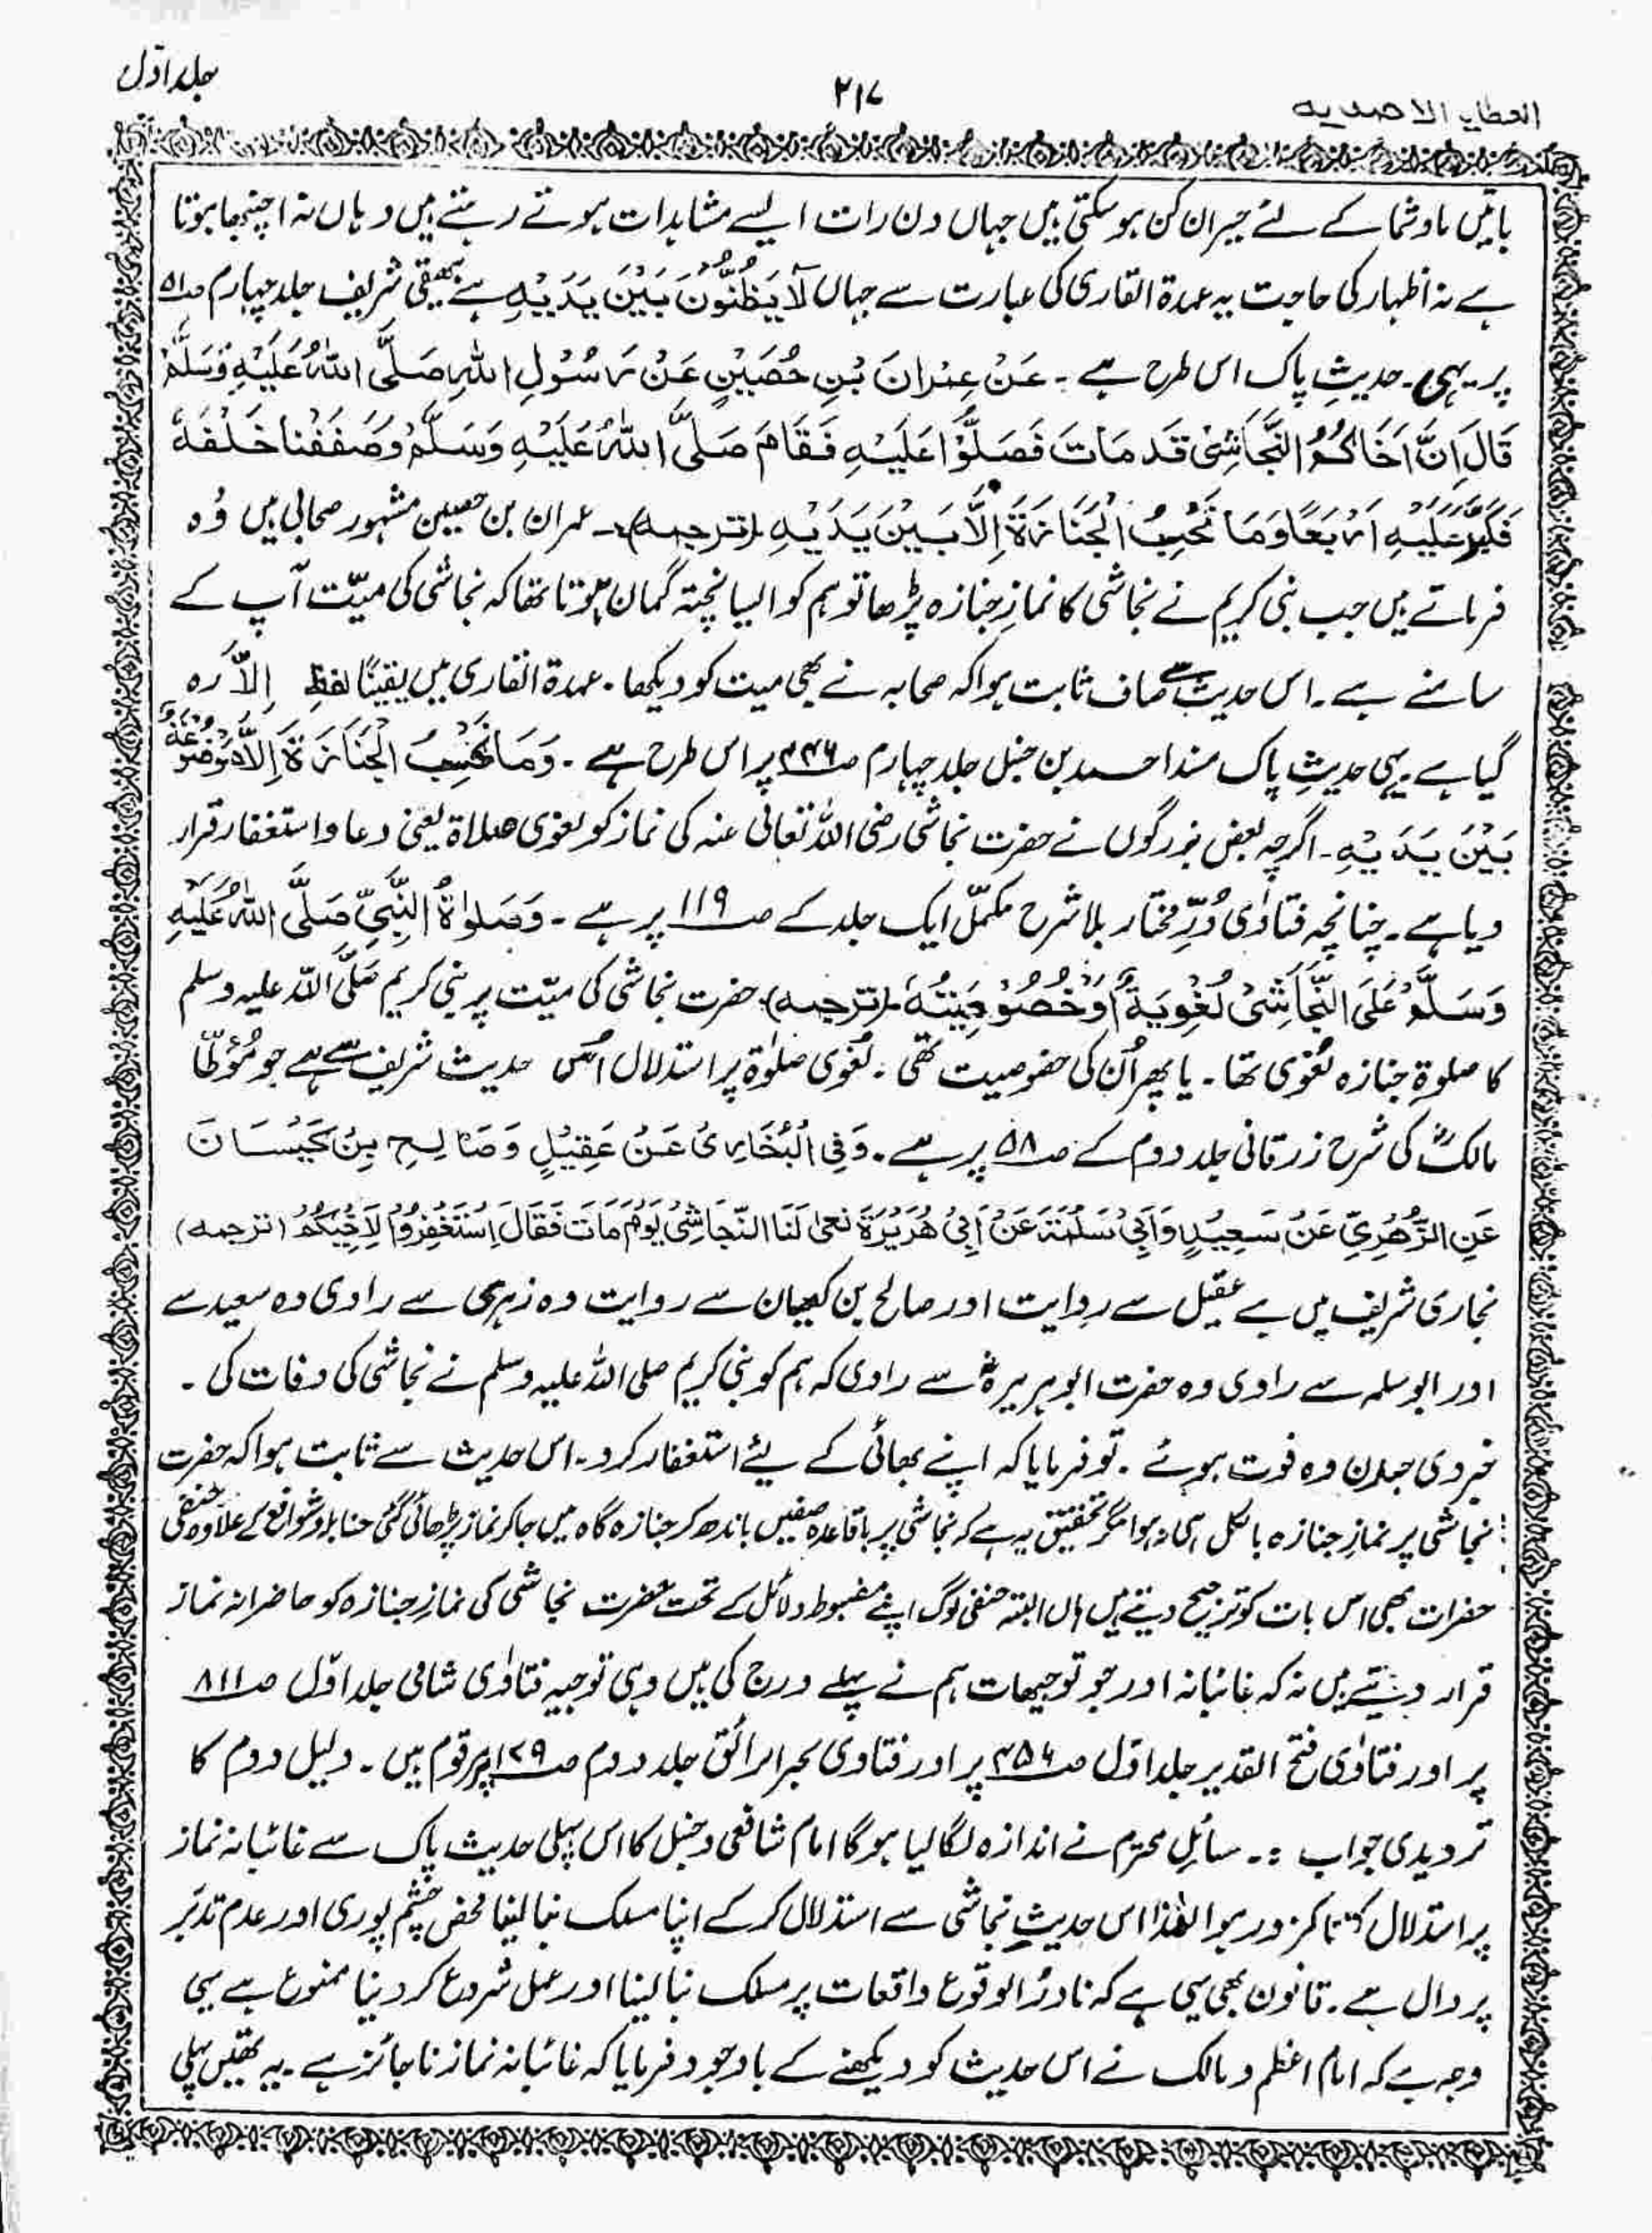 العطایا الاحمدیہ
۲۱۷
جلد اوّل
باتیں ماوشما کے لئے حیران کن ہو سکتی ہیں جہاں دن رات ایسے مشاہدات ہوتے رہتے ہیں وہاں نہ اچنبھا ہوتا
ہے نہ اظہار کی حاجت یہ عمدۃ القاری کی عبارت سے جہاں لَا یَظُنُّوْنَ بَیْنَ یَدَیْہِ ہے بیہقی شریف جلد چہارم صـ۵۱
پر یہی۔ حدیثِ پاک اس طرح ہے ۔ عَنْ عِمْرَانَ بْنِ حُصَیْنٍ عَنْ رَسُوْلِ اللہِ صَلَّی اللہُ عَلَیْہِ وَسَلَّمْ
قَالَ اِنَّ اَخَاکُمُ النَّجَّاشِیْ قَد مَاتَ فَصَلُّوْا عَلَیْہِ فَقَامَ صَلَّی اللہُ عَلَیْہِ وَسَلَّمْ وَصَفَفْنَا خَلْفَہٗ
فَکَبَّرَ عَلَیْہِ اَرْبَعًا وَمَا نَحْسِبُ الْجَنَازَۃَ اِلَّا بَیْنَ یَدَیْہِ (ترجمہ)۔ عمران بن حصین مشہور صحابی ہیں وُہ
فرماتے ہیں جب نبی کریم نے نجاشی کا نمازِ جنازہ پڑھا تو ہم کو ایسا پختہ گمان ہوتا تھا کہ نجاشی کی میّت آپ کے
سامنے ہے ۔ اس حدیث سے صاف ثابت ہوا کہ صحابہ نے بھی میت کو دیکھا ۔ عمدۃ القاری میں یقینًا لفظ اِلَّا رہ
گیا ہے یہی حدیثِ پاک مسند احمد بن حنبل جلد چہارم صـ۴۴۶ پر اس طرح ہے ۔ وَمَا نَحْسِبُ الْجَنَازَۃَ اِلَّا مَوْضُوْعَۃً
بَیْنَ یَدَیْہِ ۔ اگرچہ بعض بزرگوں نے حضرت نجاشی رضی اللہ تعالی عنہ کی نماز کو لغوی صلاۃ یعنی دعا و استغفار قرار
دیا ہے ۔ چنانچہ فتاوٰی دُرِّ مختار بلا شرح مکمّل ایک جلد کے صـ۱۱۹ پر ہے ۔ وَصَلوٰۃُ النَّبِیِّ صَلَّی اللہُ عَلَیْہِ
وَسَلَّمْ عَلَی النَّجَّاشِیْ لُغْوِیَۃٌ اَوْخُصُوْصِیَتُہٗ ۔ (ترجمہ) حضرت نجاشی کی میّت پر نبی کریم صَلَّی اللہ علیہ وسلم
کا صلوۃِ جنازہ لُغْوی تھا ۔ یا پھر اُن کی خصوصیت تھی ۔ لُغوی صلوٰۃ پر استدلال اُس حدیث شریف سے ہے جو مُؤطّا
مالکؒ کی شرح زرقانی جلد دوم کے صـ۵۸ پر ہے ۔ وَفِی الْبُخَارِیْ عَنْ عَقِیْلٍ وَصَالِحِ بِنْ کَیْسَانَ
عَنِ الزُّھْرِیِّ عَنْ سَعِیْدٍ وَاَبِیْ سَلْمَۃَ عَنْ اَبِیْ ھُرَیْرَۃَ نَعٰی لَنَا النَّجَاشِیْ یَوْمَ مَاتَ فَقَالَ اِسْتَغْفِرُوْا لِاَخِیْکُمْ (ترجمہ)
بخاری شریف میں ہے عقیل سے روایت اور صالح بن کیسان سے روایت وہ زہری سے راوی وہ سعید سے
اور ابو سلمہ سے راوی وہ حضرت ابو ہریرہؓ سے راوی کہ ہم کو نبی کریم صلی اللہ علیہ وسلم نے نجاشی کی وفات کی ۔
خبر دی جس دن وہ فوت ہوئے ۔ تو فرمایا کہ اپنے بھائی کے لیئے استغفار کرو ۔ اس حدیث سے ثابت ہوا کہ حضرت
نجاشی پر نمازِ جنازہ بالکل ہی نہ ہوا مگر تحقیق یہ ہے کہ نجاشی پر باقاعدہ صفیں باندھ کر جنازہ گاہ میں جا کر نماز پڑھائی گئی حنابلہ و شوافع کے علاوہ حنفی
حضرات بھی اس بات کو ترجیح دیتے ہیں ہاں البتہ حنفی لوگ اپنے مضبوط دلائل کے تحت حضرت نجاشی کی نمازِ جنازہ کو حاضرانہ نماز
قرار دیتے ہیں نہ کہ غائبانہ اور جو توجیہات ہم نے پہلے درج کی ہیں وہی توجیہ فتاوٰی شامی جلد اوّل صـ۸۱۱
پر اور فتاوٰی فتح القدیر جلد اوّل صـ۴۵۶ پر اور فتاوی بحر الرائق جلد دوم صـ۱۷۹ پر مرقوم ہیں ۔ دلیل دوم کا
تردیدی جواب :۔ سائلِ محترم نے اندازہ لگا لیا ہوگا امام شافعی و حنبل کا اس پہلی حدیث پاک سے غائبانہ نماز
پر استدلال کتنا کمزور ہوا لھٰذا اس حدیثِ نجاشی سے استدلال کر کے اپنا مسلک بنا لینا محض چشم پوری اور عدم تدبّر
پر دال ہے ۔ قانون بھی یہی ہے کہ نادرُ الوقوع واقعات پر مسلک بنا لینا اور عمل شروع کر دینا ممنوع ہے یہی
وجہ ہے کہ امام اعظم و مالک نے اس حدیث کو دیکھنے کے باوجود فرمایا کہ غائبانہ نماز ناجائز ہے ۔ یہ تھیں پہلی